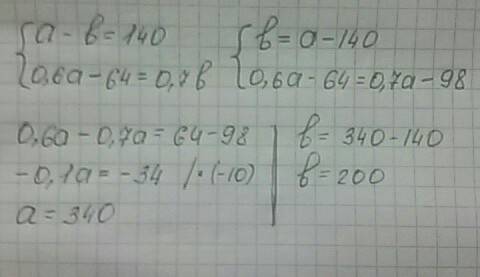 {a - b = 140
{0,6a - 64 = 0,7b
{b = a - 140
{0,6a - 64 = 0,7a - 98
0,6a - 0,7a = 64 - 98
-0,1a = -34 / · (-10)
a = 340
b = 340 - 140
b = 200